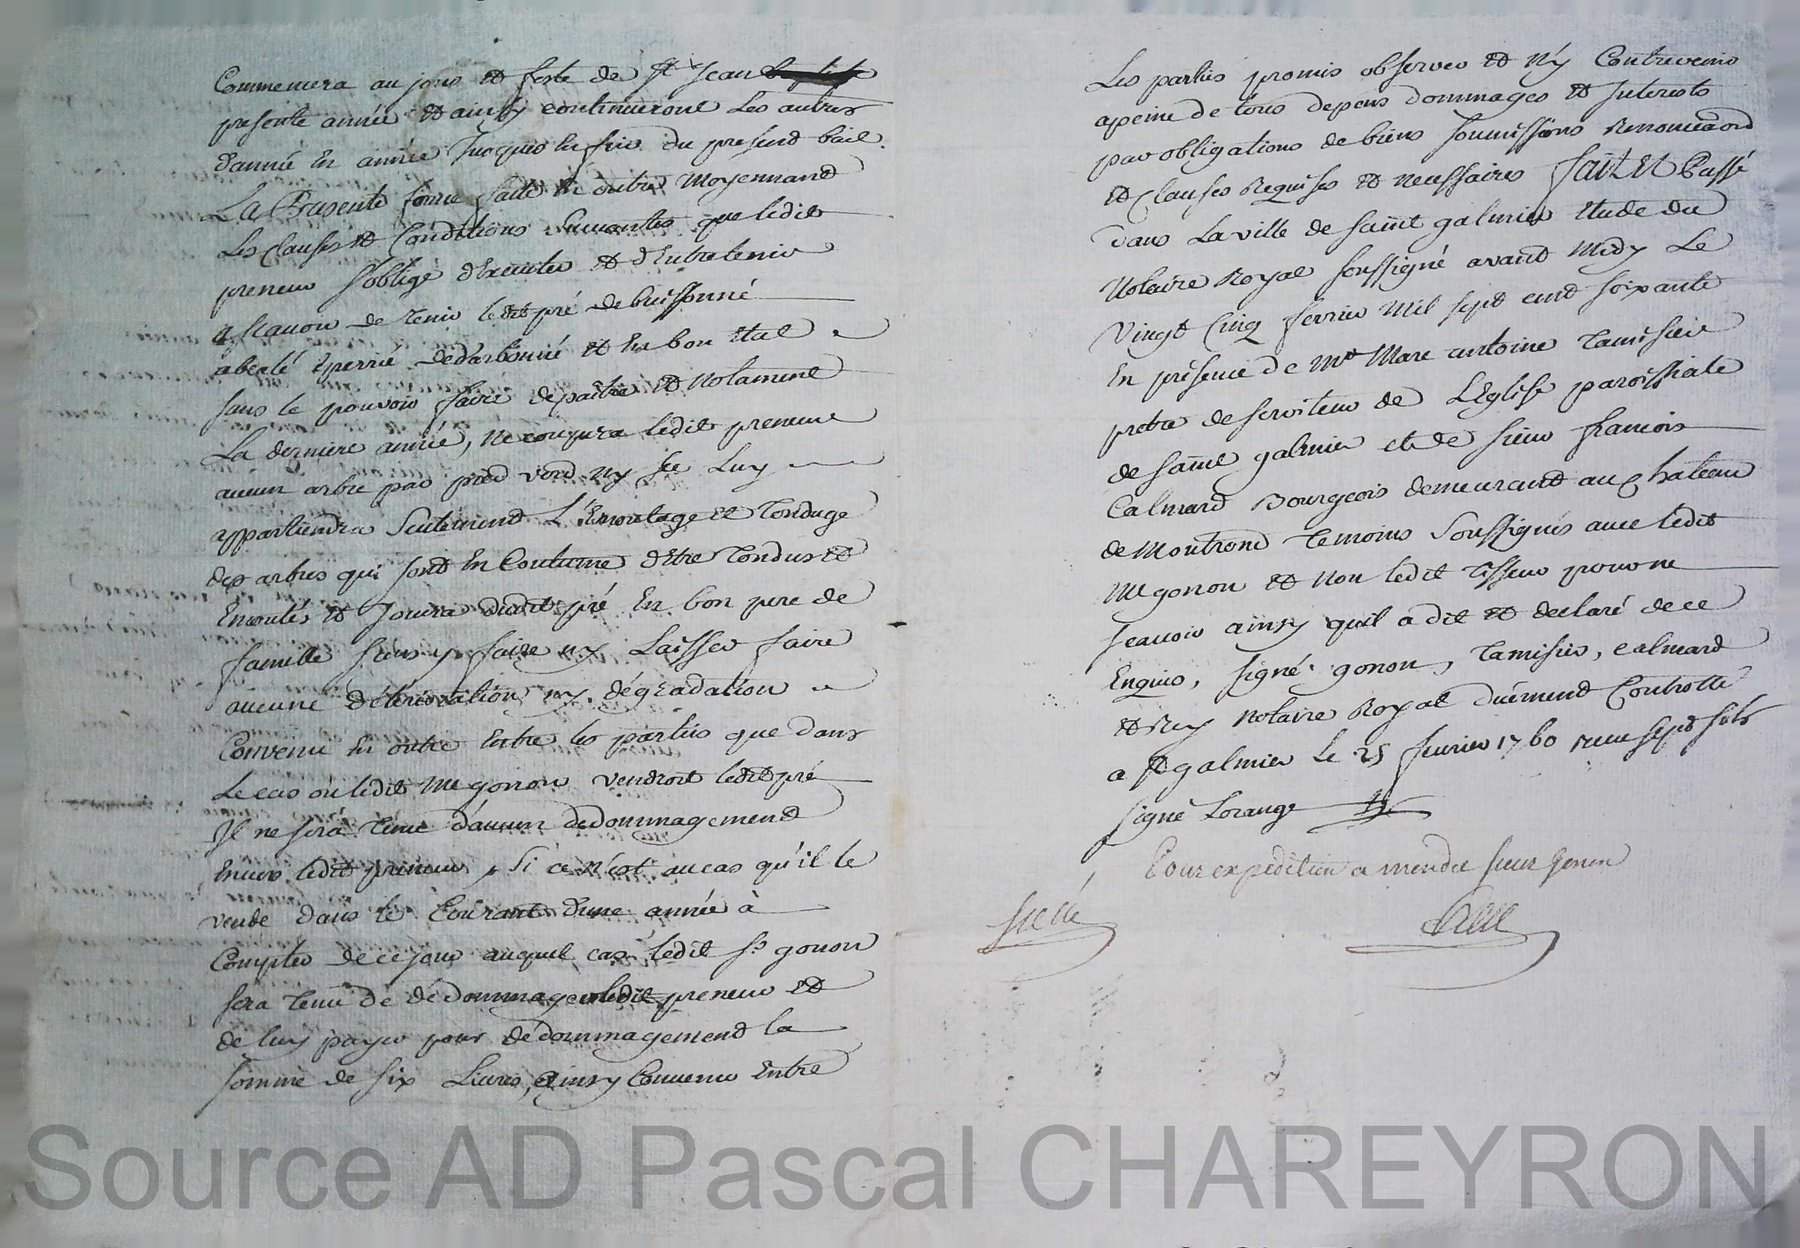 Commencera au jour et feste de st Jean
presente année et ainsy continueront les autres
d'année en année jusques la fin du present bail.
La Presente ferme faite en outre moyennand
Les Clauses et Conditions suivantes que ledit
preneur s'oblige d'Executer et d'Entretenir
a scavoir de tenir ledit pré de buissonné
abealé Eperré et en bon Etat
sans le pouvoir faire depaitre et Notament
La derniere année, Ne coupera ledit preneur
aucun arbre par pied verd ny sec Luy
appartiendra seulement L'Emoutage et Tondage
des arbres qui sont En Coutume d'Etre Tondus et
Emoutés et Jouira dudit pré En bon pere de
famille sans y faire ny Laisser faire
aucune détérioration ny dégradation
Convenu en outre Entre les parties que dans
Le cas où ledit Me gonon vendroit ledit pré
Il ne sera Tenu d'aucun dedommagement
Envers ledit preneur, si ce n'est au cas qu'il le
vende dans le Courant d'une année à
Compter de ce jour auquel cas ledit sr gonon
sera Tenu de dédommager ledit preneur et
de luy payer pour dédommagement la
somme de six Livres, ainsy Convenu Entre
Les parties promis observer et N'y Contrevenir
apeine de tous depens dommages et Interests
par obligations de biens soumissions Renonciaond
et Clauses Requises et necessaires fait et Passé
dans La ville de saint galmier Etude du
Notaire Royal soussigné avant Midy Le
Vingt Cinq fevrier Mil sept cent soixante
En présence de Mre Marc antoine Tamisier
pretre deserviteur de L'Eglise paroissiale
de saint galmier et de sieur francois
Calmard Bourgeois demeurant au Chateau
de Montrond Temoins soussignés avec ledit
Me gonon et Non ledit Tisseur pour ne
scavoir ainsy qu'il a dit et declaré de ce
Enquis, signé gonon, Tamisier, calmard
et Rey Notaire Royal duëment Controllé
a st galmier Le 25 fevrier 1760 reçu sept sols
signé Lorange
Pour expedition a mondit sieur Gonon
scellé
Source AD Pascal CHAREYRON